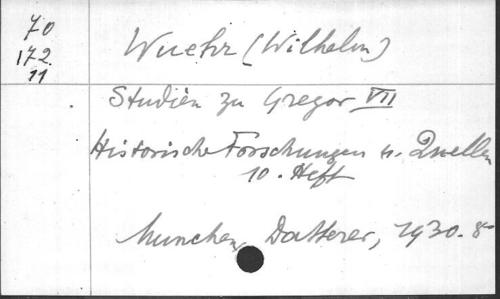 70
172.
11
Wuehr (Wilhelm)
Studien zu Gregor VII
Historische Forschungen u. Quellen
10. Heft
Munchen, Datterer, 1930. 8°